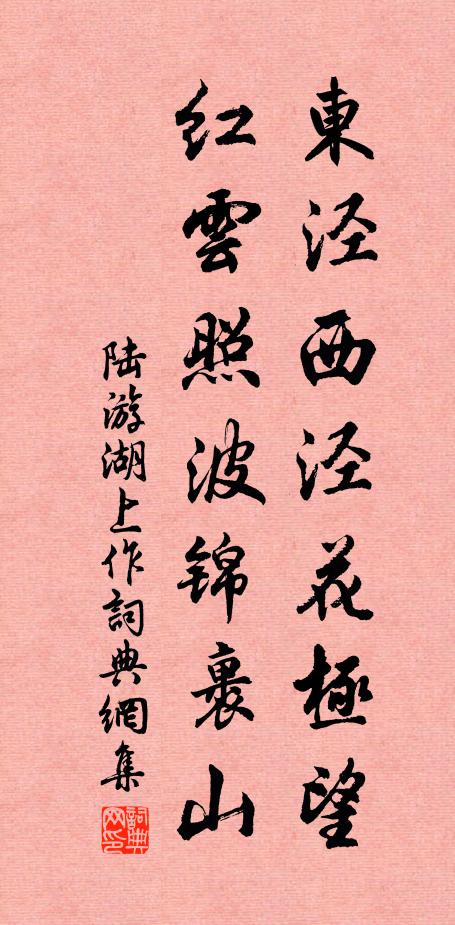 東泾西泾花極望
红雲照波锦裹山
陆游湖上作詞典網集
詞典网印